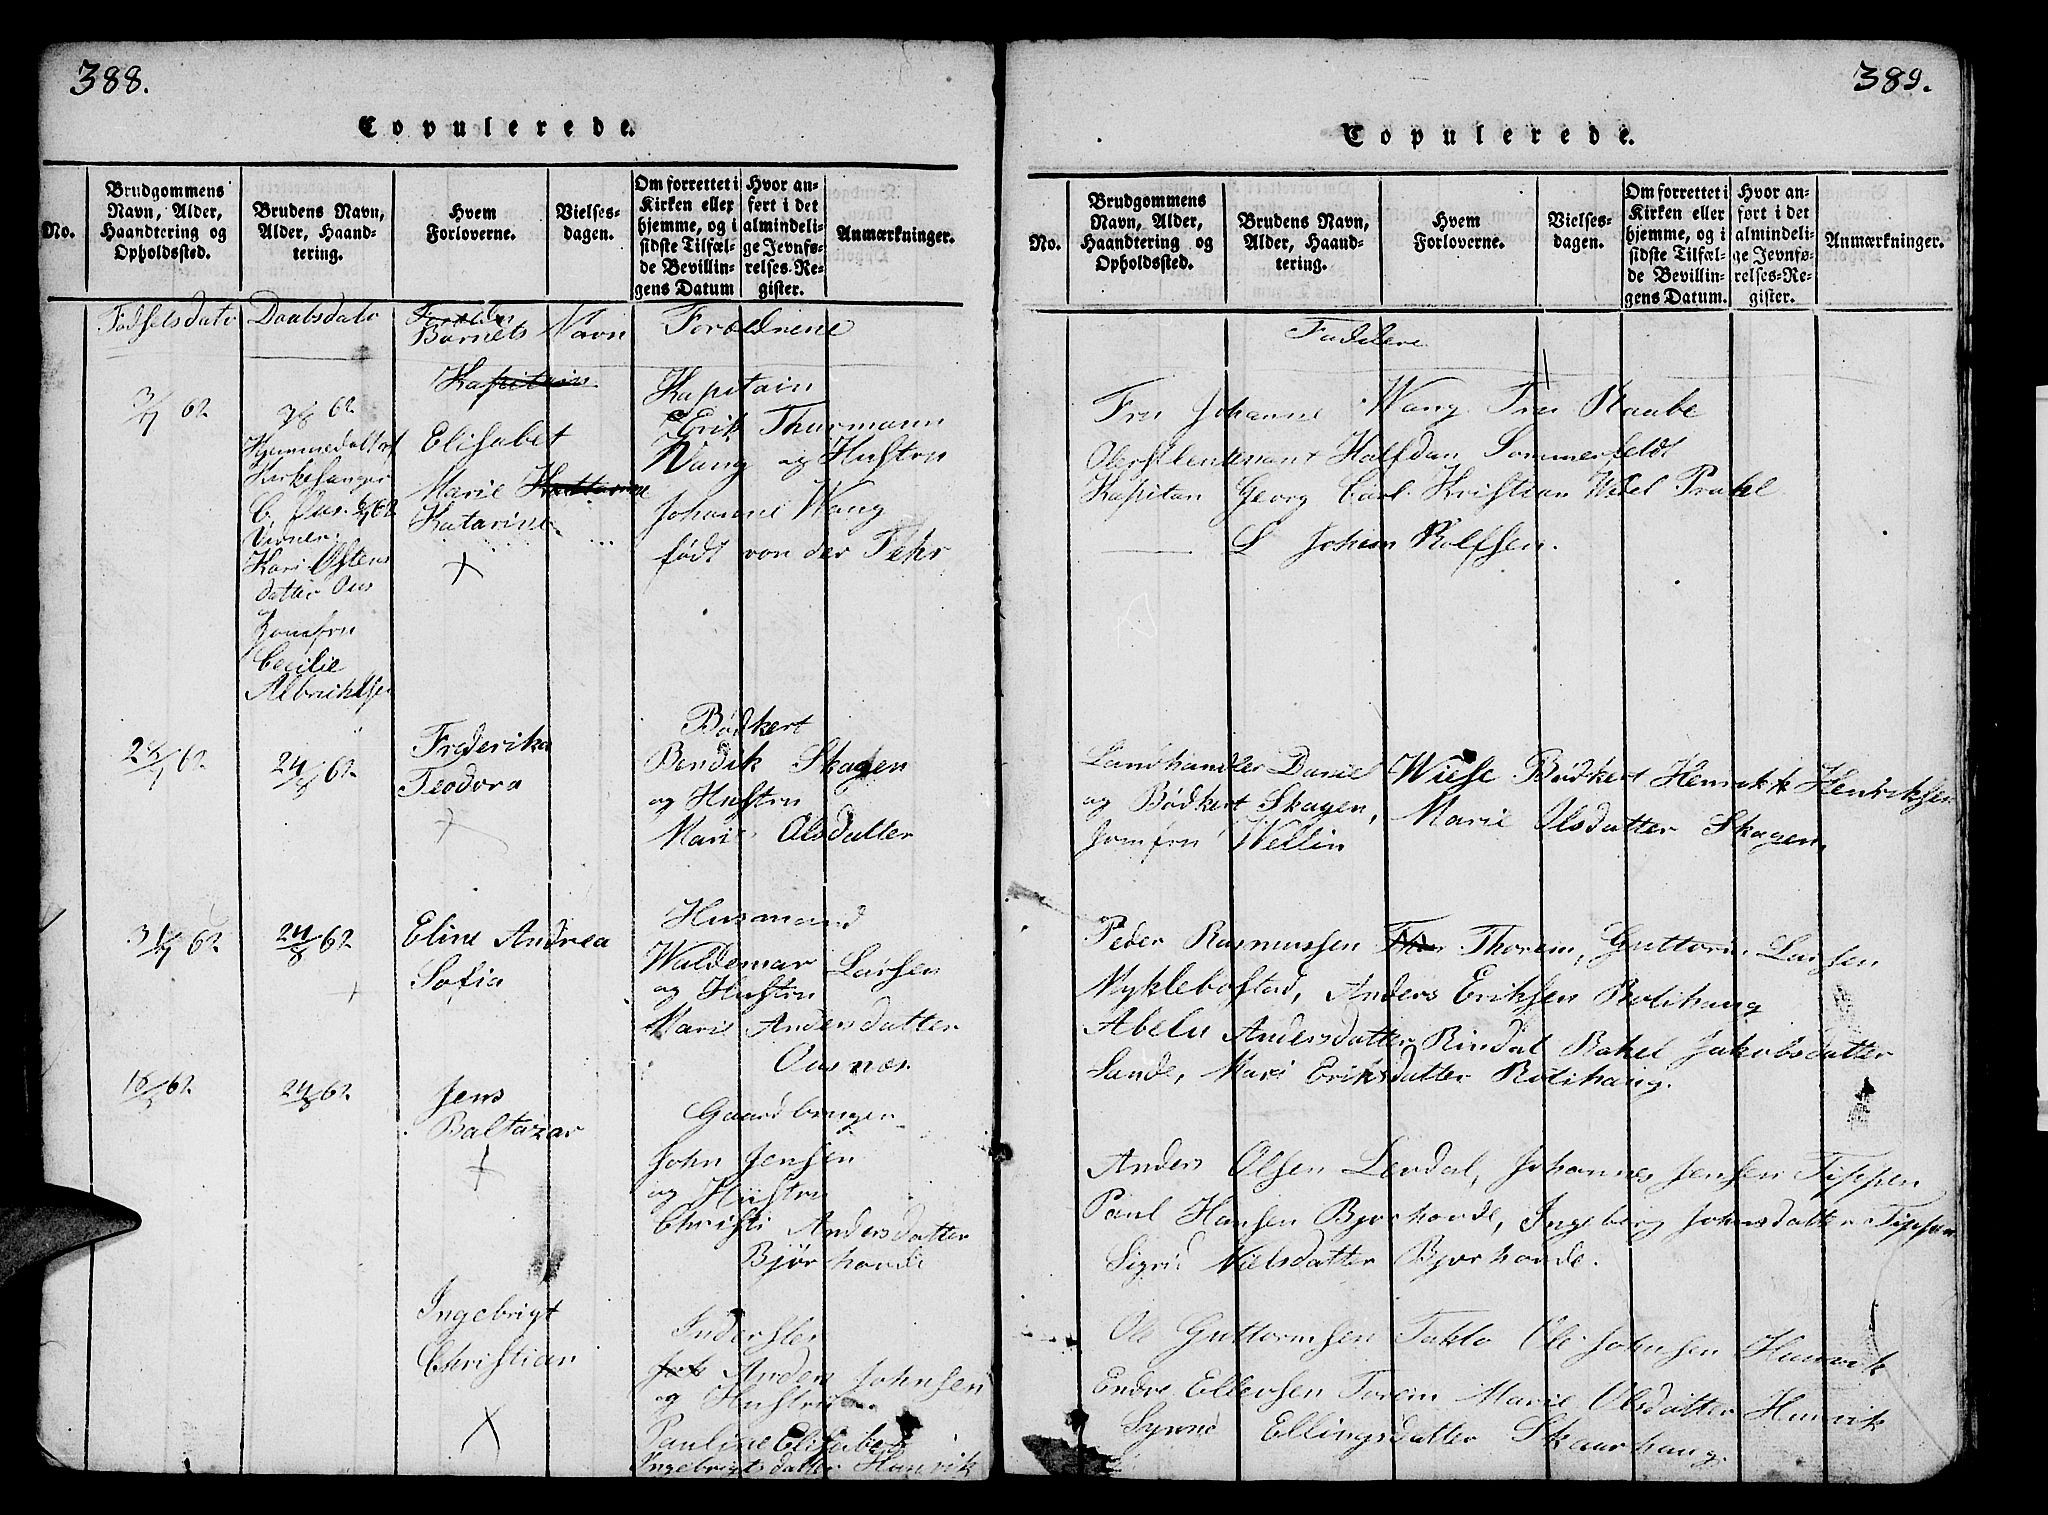 388.
Copulerede.
No.
Brudgommens Navn, Alder, Haandtering og Opholdssted.
Brudens Navn, Alder, Haandtering.
Hvem Forloverne.
Vielsesdagen.
Om forrettet i Kirken eller hjemme, og i sidste Tilfælde Bevillingens Datum
Hvor anført i det almindelige Jevnførelses-Register.
Anmærkninger.
Fødselsdato Daabsdato Barnets Navn Forældrene
3/7 62
3/8 62 Kapitain
Kapitain
Hjemmedøbt af
Kirkesanger
Elisabet
Erik Thurmann
Wang og Hustru
Marie
Katarine
Johanne Wang
født von der Fehr
Kari Østens
datter Aas
og
Jomfru
Cecilie
Albriktsen
Bødker
28/7 62 24/8 62 Frederika
Teodora
Bendik Skagen
og Hustru
Mari Olsdatter
31/7 62 24/8 62 Eline Andrea
Sofia
Husmand
Waldemar Larsen
og Hustru
Mari Andersdatter
Aasnæs.
24/8 62 Jens
Baltazar
Gaardbruger
John Jensen
og Hustru
Christi Andersdatter
Bjørhovde
Ingebrigt
Christian
Inderster
Anders Johnsen
og Hustru
Pauline Elisabet
Ingebrigtsdatter Hunvik
389.
Copulerede.
No.
Brudgommens Navn, Alder, Haandtering og Opholdssted.
Brudens Navn, Alder, Haandtering.
Hvem Forloverne.
Vielsesdagen.
Om forrettet i Kirken eller hjemme, og i sidste Tilfælde Bevillingens Datum.
Hvor anført i det almindelige Jevnførelses-Register.
Anmærkninger.
Faddere
Fru Johanne Wang Fru Raabe
Oberstleutenant Halfdan Sommerfeldt
Kapitan Georg Carl Kristian Wedel Prahl
L Johim Rolfsen.
Landhandler Daniel Wiese Bødker Henrik Henriksen
og Bødker Skagen, Marie Olsdatter Skagen,
Jomfru Wellin
Peder Rasmussen Thorem, Guttorm Larsen
Myklebostad, Anders Eriksen Rolihaug
Abelu Andersdatter Rindal Rakel Jakobsdatter
Sande, Mari Eriksdatter Rolihaug.
Anders Olsen Lerdal, Johannes Jensen Tippen
Paul Hansen Bjorhovde, Ingeborg Johnsdatter Tippen
Sigrid Nielsdatter Bjorhovde.
Ole Guttormsen Taklo Ole Johnsen Hunvik
Endre Ellevsen Torem Marie Olsdatter Hunvik
Synnø Ellingsdatter Skaarhaug